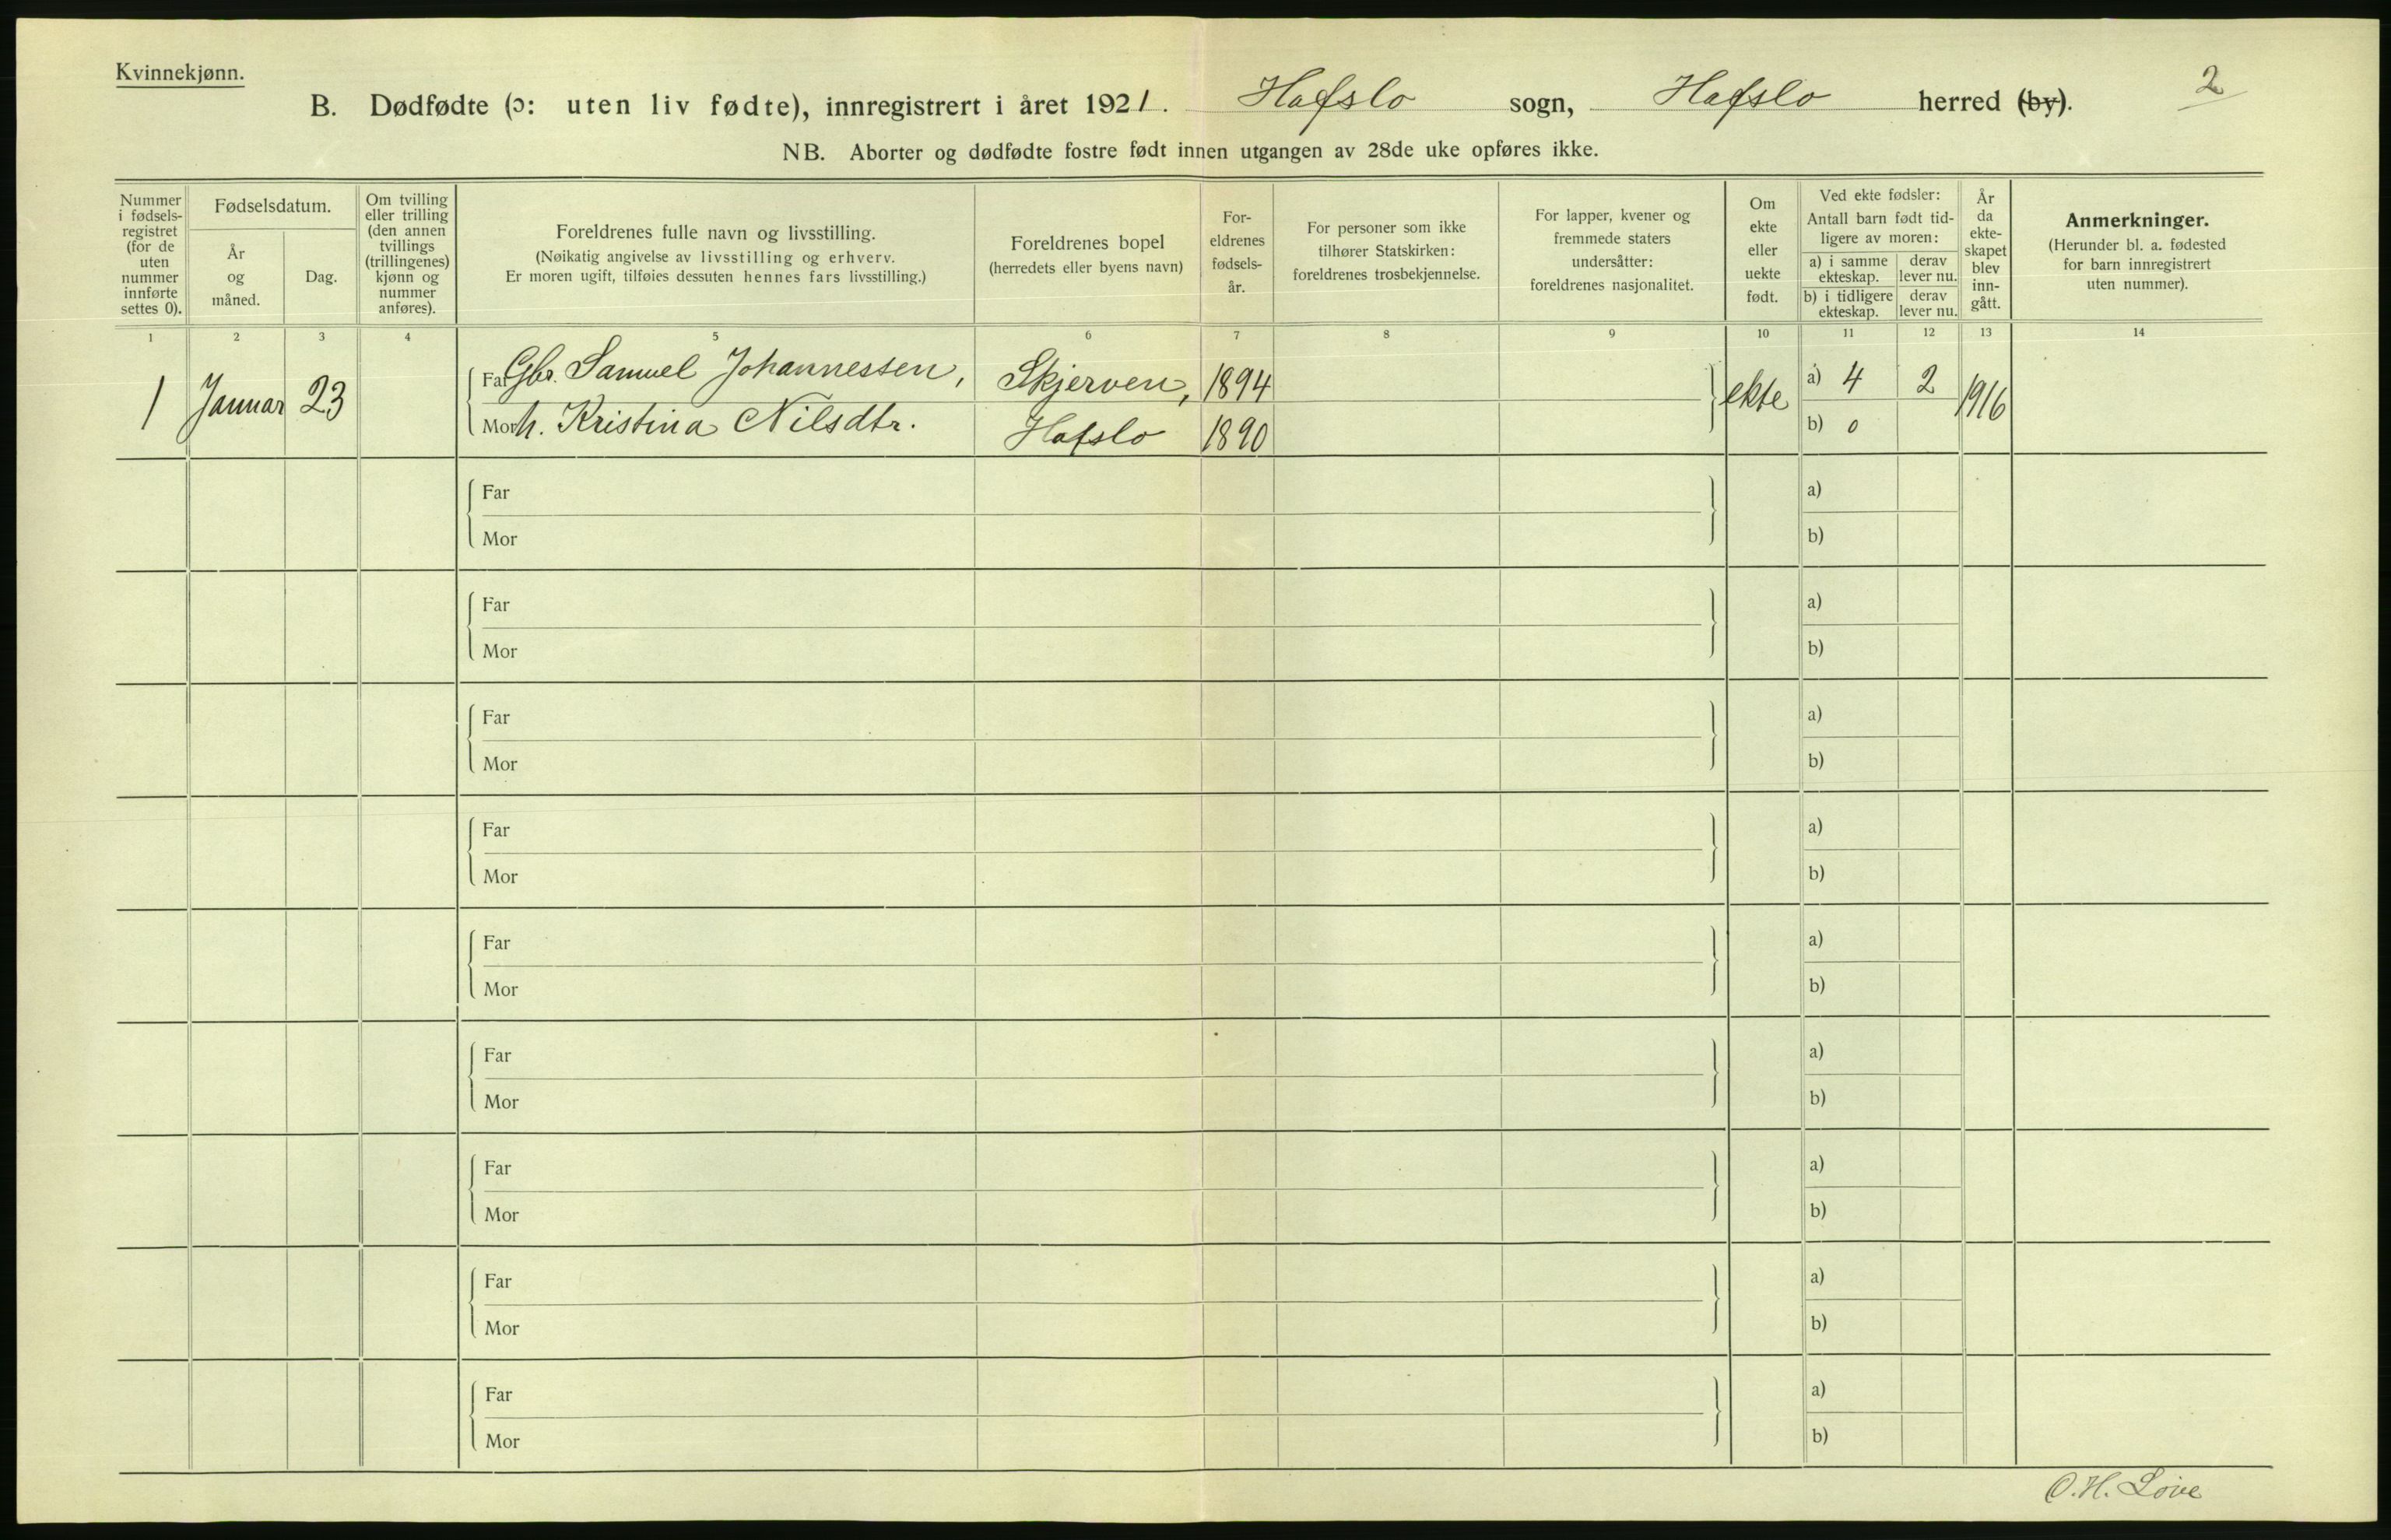 Kvinnekjønn.
2
B. Dødfødte (ɔ: uten liv fødte), innregistrert i året 1921. Hafslo sogn, Hafslo herred (by).
NB. Aborter og dødfødte fostre født innen utgangen av 28de uke opføres ikke.
Nummer i fødsels-registret (for de uten nummer innførte settes 0).
Fødselsdatum.
År og måned.
Dag.
Om tvilling eller trilling (den annen tvillings (trillingenes) kjønn og nummer anføres).
Foreldrenes fulle navn og livsstilling.
(Nøikatig angivelse av livsstilling og erhverv.
Er moren ugift, tilføies dessuten hennes fars livsstilling.)
Foreldrenes bopel
(herredets eller byens navn)
For-eldrenes fødsels-år.
For personer som ikke tilhører Statskirken: foreldrenes trosbekjennelse.
For lapper, kvener og fremmede staters undersåtter: foreldrenes nasjonalitet.
Om ekte eller uekte født.
Ved ekte fødsler:
Antall barn født tid-ligere av moren:
a) i samme ekteskap.
derav lever nu.
b) i tidligere ekteskap.
derav lever nu.
År da ekte-skapet blev inn-gått.
Anmerkninger.
(Herunder bl. a. fødested for barn innregistrert uten nummer).
1 2 3 4 5 6 7 8 9 10 11 12 13 14
1 Januar 23
Far Gbr. Samuel Johannessen, Skjerven, 1894
Mor h. Kristina Nilsdtr. Hafslo 1890
ekte a) 4 2 1916
b) 0
Far a)
Mor b)
Far a)
Mor b)
Far a)
Mor b)
Far a)
Mor b)
Far a)
Mor b)
Far a)
Mor b)
Far a)
Mor b)
Far a)
Mor b)
Far a)
Mor b)
O. H.